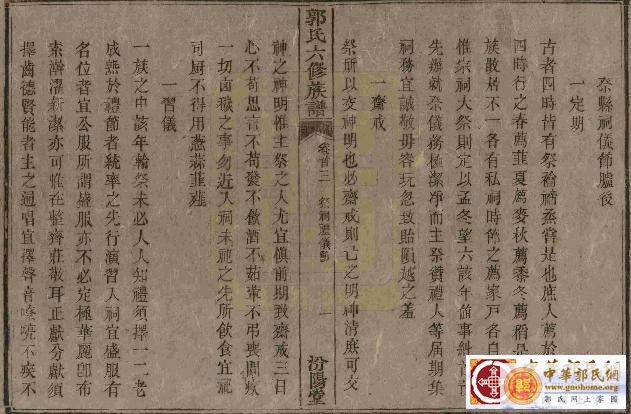 祭縣祠儀節臚後
一定期
古者四時皆有祭礿禘烝嘗是也庶人薦於
四時行之春薦韭夏薦麥秋薦黍冬薦稻
族散居不一各有私祠時節之薦家戸各自
惟宗祠大祭則定以孟冬望六該年首事糾
先辦就祭儀務極潔凈而主祭贊禮人等屆期集
祠務宜誠敬毋容玩忽致貽隕越之羞
一齋戒
祭所以交神明也必齋戒則己之明神清庶可交
郭氏六修族譜
卷首三 祭祠禮儀節 一
汾陽堂
神之神明惟主祭之人尤宜慎前期致齋戒三日
心不苟思言不苟發不飲酒不茹葷不弔喪問疾
一切凶穢之事勿近入祠未祀之先所飲食宜祀
司厨不得用葱蒜韮薤
一習儀
一族之中該年輪祭未必人人知禮須擇一二老
成熟於禮節者統率之先行演習入祠宜盛服有
名位者宜公服所謂盛服亦不必定極華麗即布
素濣濯新潔亦可惟在整齊莊敬耳正獻分獻須
擇齒德賢能者主之通唱宜擇聲音嘹亮不疾不
中華郭氏網
www.guohome.org
郭氏网上家园